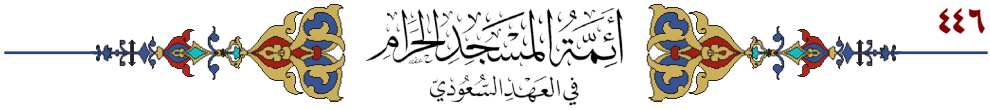 ٤٤٦
أئمة المسجد الحرام
في العهد السعودي